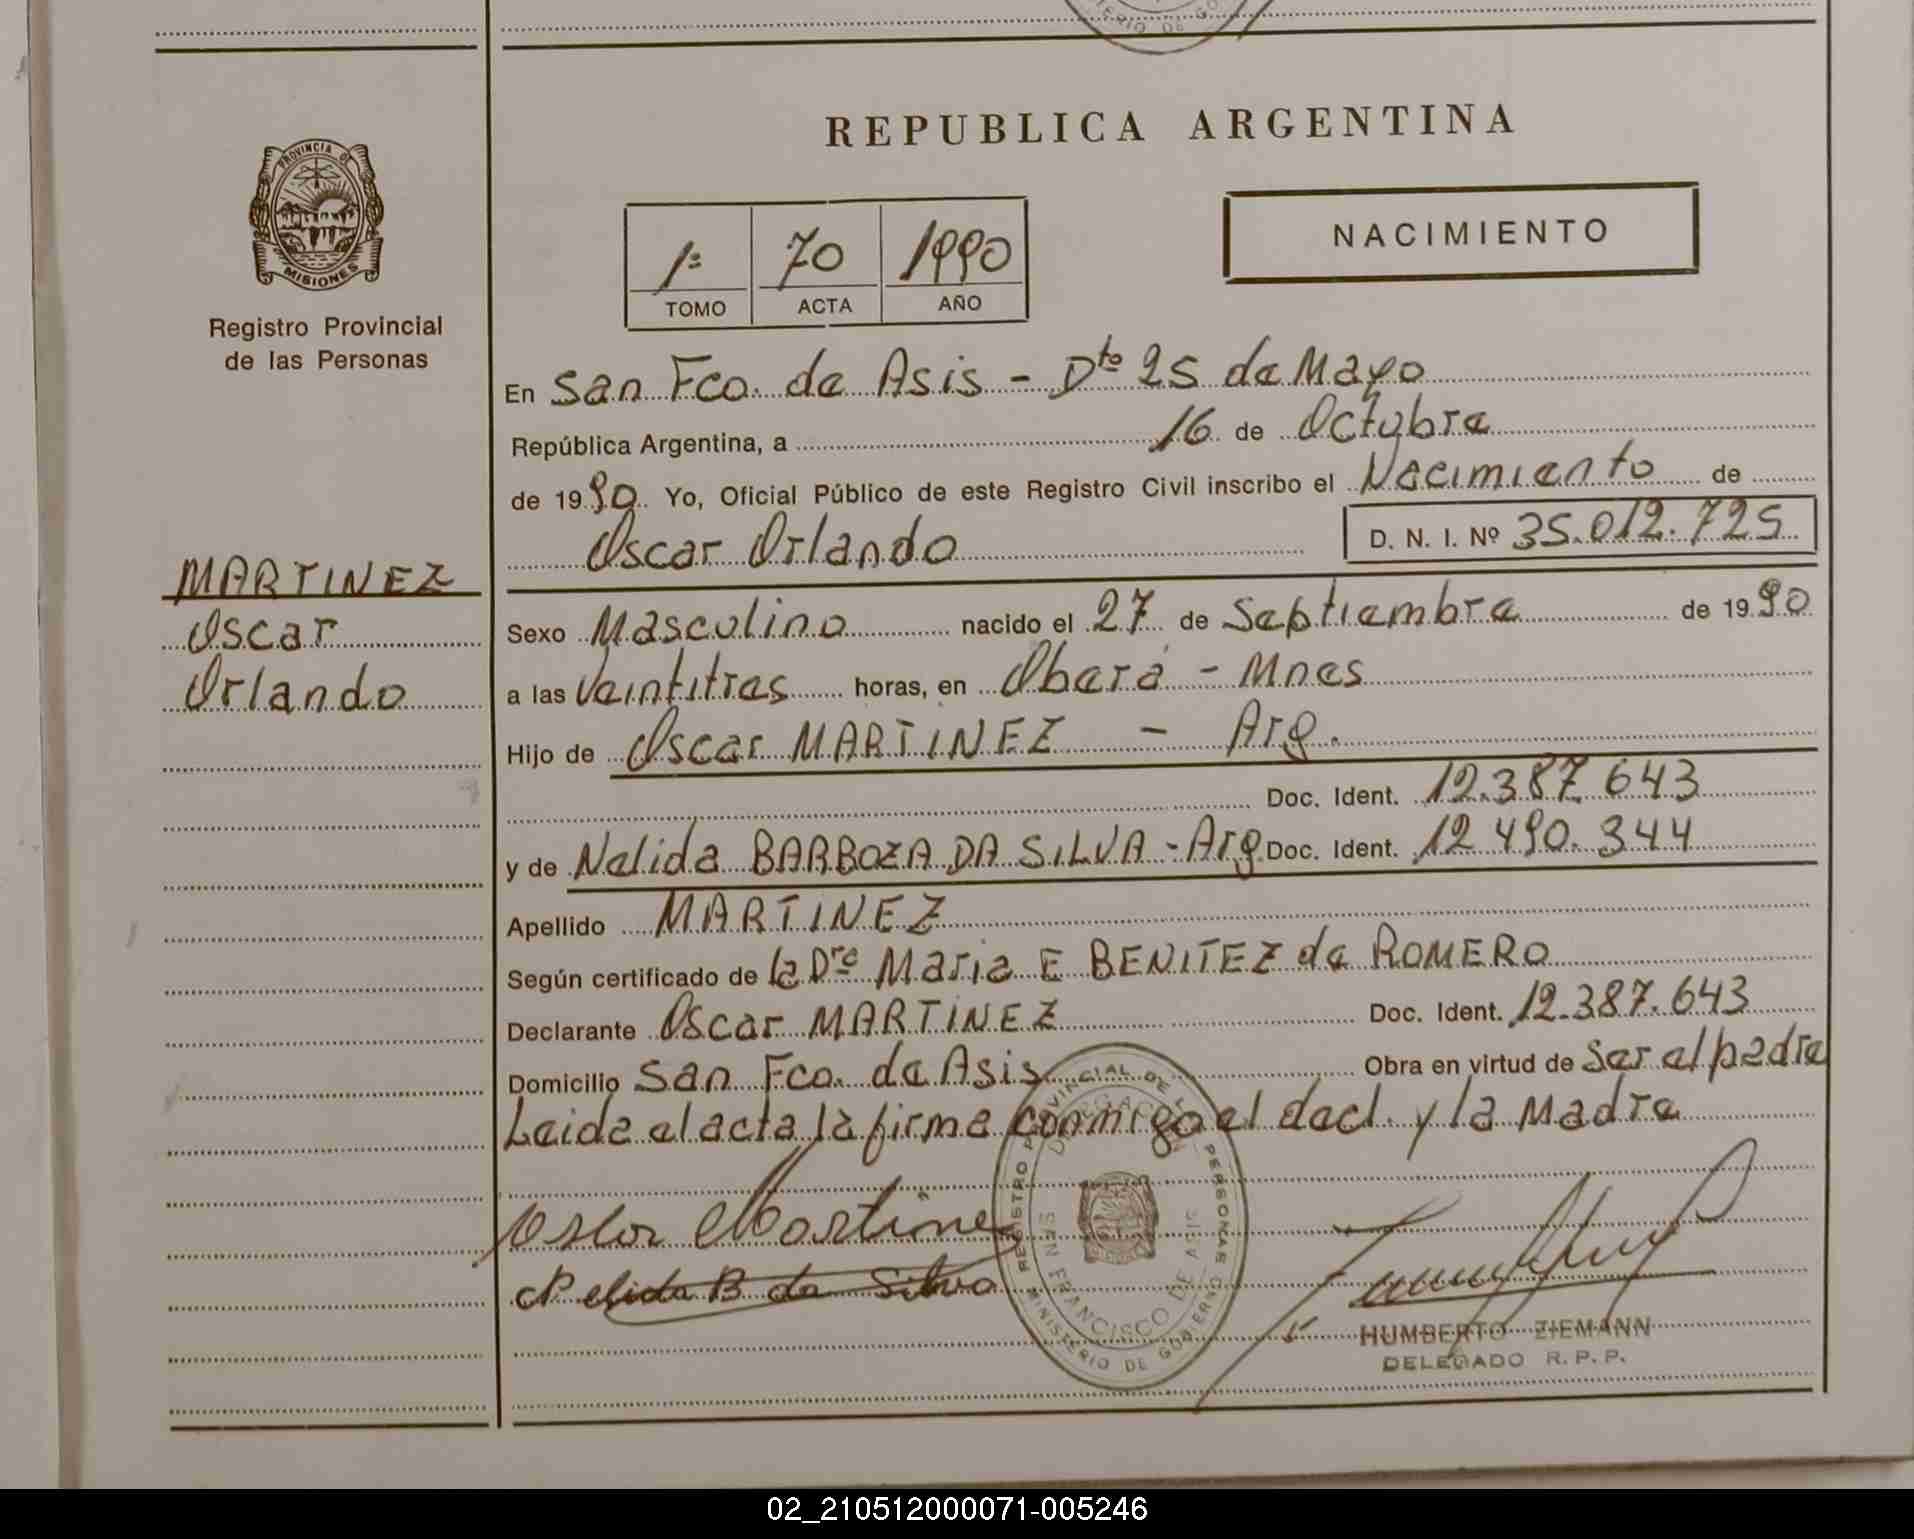 MINISTERIO DE GO
REPUBLICA ARGENTINA
PROVINCIA DE
MISIONES
Registro Provincial
de las Personas
1º 70 1990
TOMO ACTA AÑO
NACIMIENTO
En San Fco. de Asis - Dto 25 de Mayo
República Argentina, a 16 de Octubre
de 1990 Yo, Oficial Público de este Registro Civil inscribo el Nacimiento de
Oscar Orlando D. N. I. Nº 35.012.725
MARTINEZ
Oscar
Orlando
Sexo Masculino nacido el 27 de Septiembre de 1990
a las Veintitres horas, en Oberá - Mnes
Hijo de Oscar MARTINEZ - Arg.
Doc. Ident. 12.387.643
y de Nelida BARBOZA DA SILVA - Arg Doc. Ident. 12.490.344
Apellido MARTINEZ
Según certificado de la Dra Maria E BENITEZ de ROMERO
Declarante Oscar MARTINEZ Doc. Ident. 12.387.643
Domicilio San Fco. de Asis Obra en virtud de Ser el padre
Leida el acta la firma conmigo el decl. y la Madre
Oscar Martine
Nelida B da Silva
REGISTRO PROVINCIAL DE LAS PERSONAS
MINISTERIO DE GOBIERNO
DELEGACION
SAN FRANCISCO DE ASIS
HUMBERTO ZIEMANN
DELEGADO R. P. P.
02_210512000071-005246